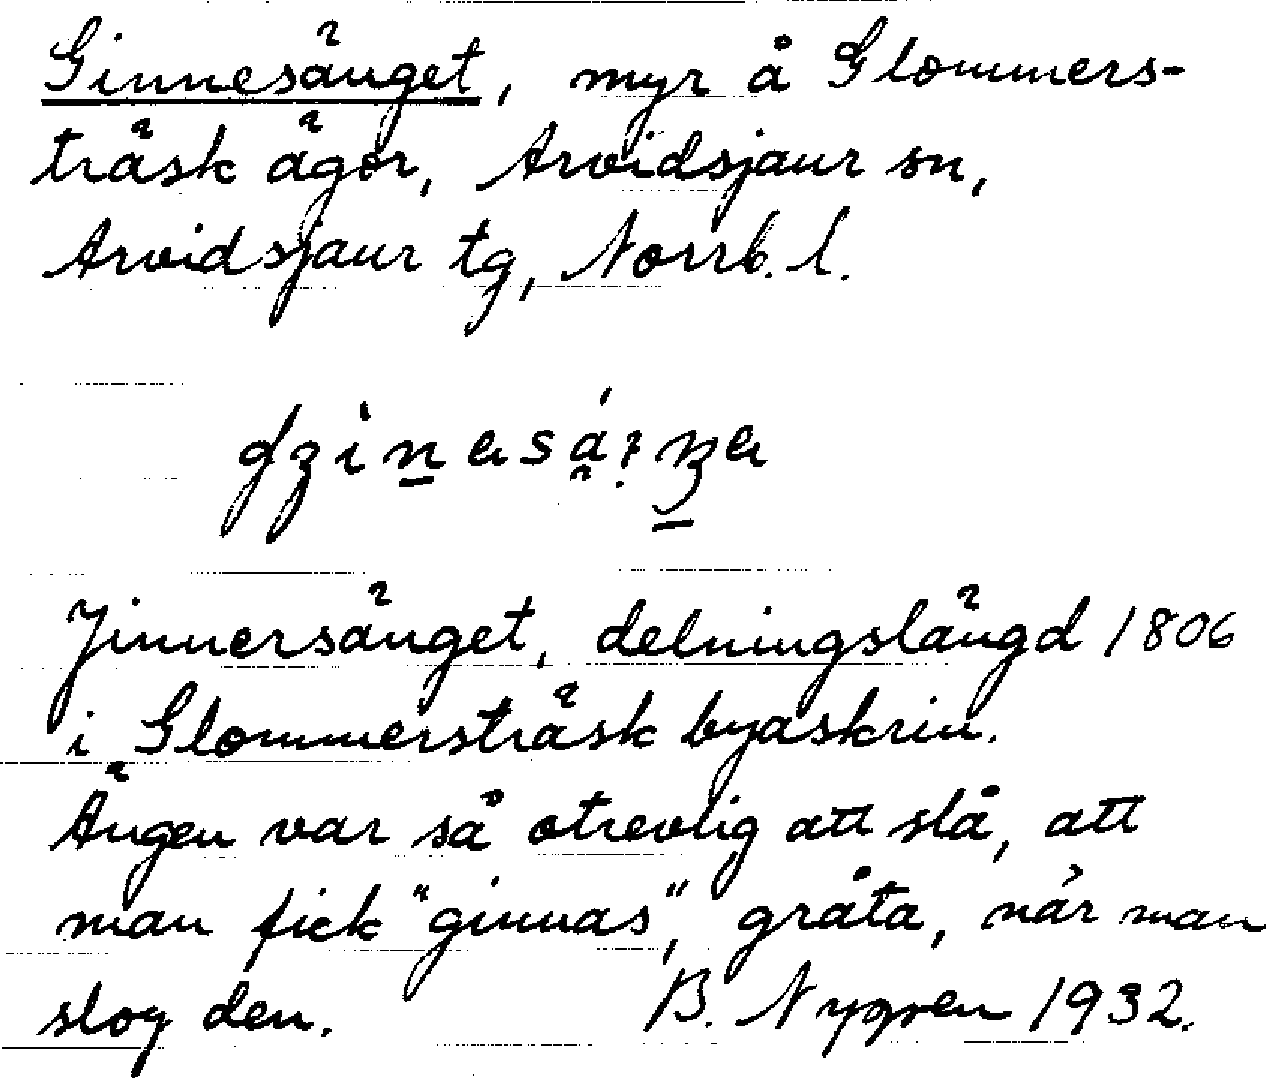 Ginnesänget, myr å Glommers-
träsk ägor, Arvidsjaur sn,
Arvidsjaur tg, Norrb. l.
Jinnersänget, delningslängd 1806
i Glommersträsk byaskrin.
Ängen var så otrevlig att slå, att
man fick "ginnas", gråta, när man
slog den. B. Nygren 1932.